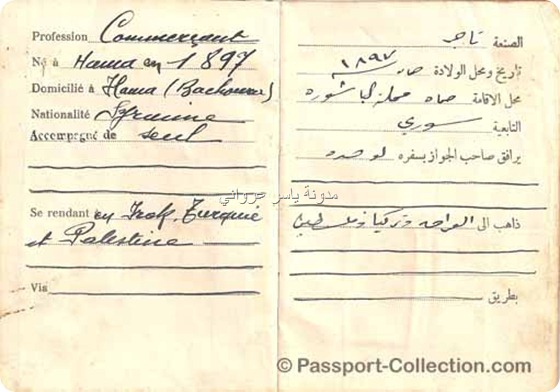 Profession Commerçant
Né à Hama en 1897
Domicilié à Hama (Bachoura)
Nationalité Syrienne
Accompagné de seul
Se rendant en Irak, Turquie
et Palestine
Via
الصنعة تاجر
تاريخ ومحل الولادة حماه ١٨٩٧
محل الاقامة حماه محلة الباشوره
التابعية سوري
يرافق صاحب الجواز بسفره لوحده
ذاهب الى العراق وتركيا وفلسطين
بطريق
مدونة ياسر حوراني
© Passport-Collection.com